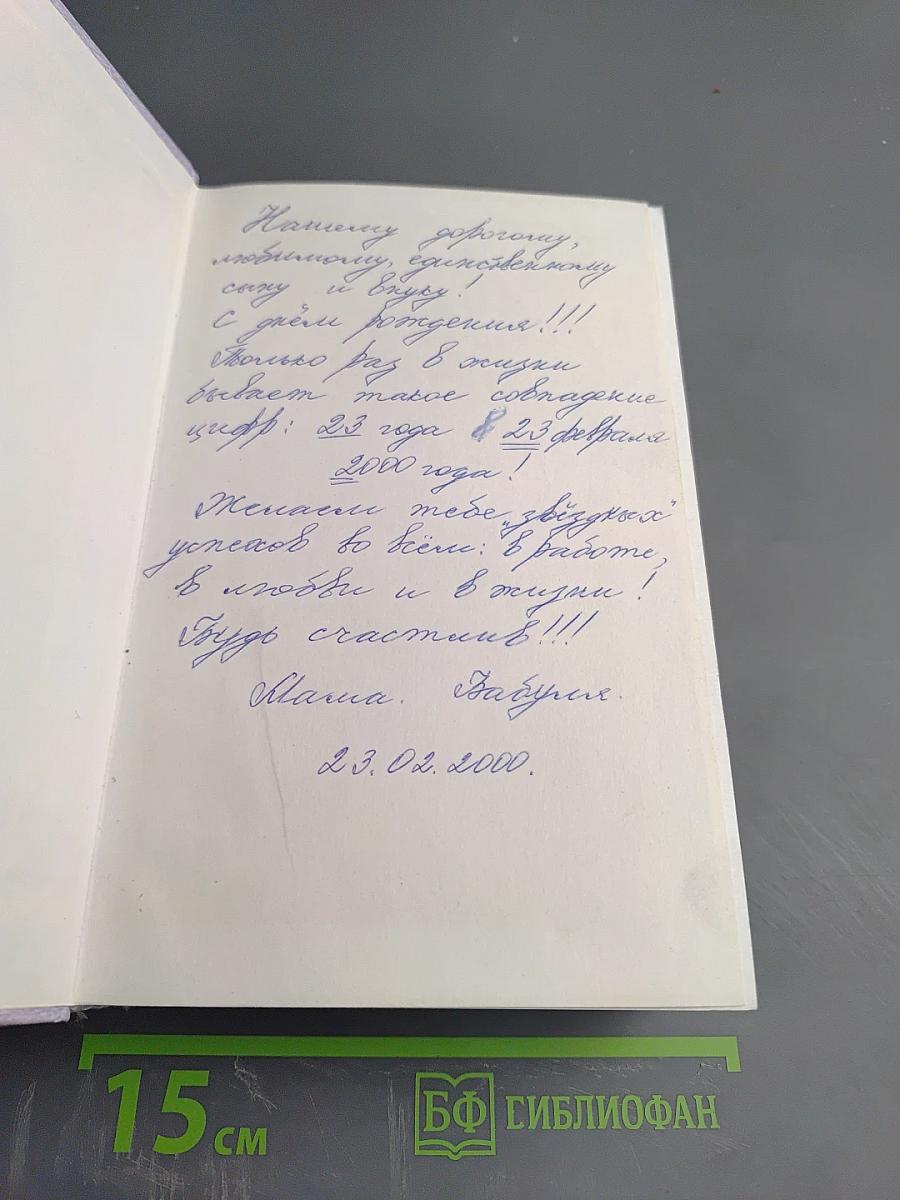 Нашему дорогому,
любимому, единственному
сыну и внуку!
С днём рождения!!!
Только раз в жизни
бывает такое совпадение
цифр: 23 года в 23 февраля
2000 года!
Желаем тебе „звёздных"
успехов во всём: в работе,
в любви и в жизни!
Будь счастлив!!!
Мама. Бабуля.
23.02.2000.
15 см
БФ СИБЛИОФАН